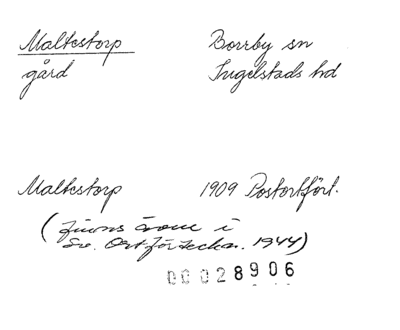 Maltestorp Borrby sn
gård Ingelstads hd
Maltestorp 1909 Postortfört.
(finns även i
Sv. Ortförteckn. 1944)
00028906